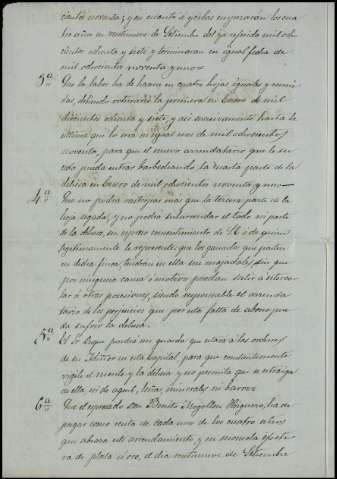 cientos noventa; y en cuanto a yerbas empezarán los cua
tro años en veintinueve de Setiembre del ya referido mil ocho
cientos ochenta y siete y terminaran en igual fecha de
mil ochocientos noventa y uno.
3ª Que la labor ha de hacerse en cuatro hojas iguales y corri-
das, debiendo entrar la primera en Enero de mil
ochocientos ochenta y siete, y así sucesivamente hasta la
ultima que lo será en igual mes de mil ochocientos
noventa, para que el nuevo arrendatario que le su-
ceda pueda entrar barbechando la cuarta parte de la
dehesa en Enero de mil ochocientos noventa y uno.
4ª Que no podrá rastrojear mas que la tercera parte de la
hoja segada, y no podrá subarrendar el todo ni parte
de la dehesa, sin espreso consentimiento de S. E. ó de quien
legitimamente le represente; que los ganados que pasten
en dicha finca, tendran en ella sus majadales, sin que
por ninguna causa ó motivo puedan salir a estercar
lar á otras posesiones, siendo responsable el arrenda-
tario de los perjuicios que por esta falta de abono pue-
da sufrir la dehesa.
5ª El Sr. Duque pondrá un guarda que estará a las ordenes
de su Admor en esta Capital, para que constantemente
vigile el monte y la dehesa y no permita que se estraiga
de ella, ni de aquel, leñas, minerales ni barros.
6ª Que el espresado Don Benito Mogollon Higuero, ha de
pagar como renta de cada uno de los cuatro años
que abraza este arrendamiento y en moneda efecti-
va de plata ú oro, el dia veintinueve de Setiembre